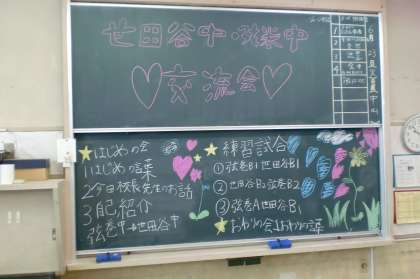 世田谷中・弦巻中
♡交流会♡
6月23日
1
2
3
4
★はじめの会
1はじめの言葉
2今日校長先生のお話
3自己紹介
弦巻中→世田谷中
★練習試合
①弦巻B1世田谷B1
②世田谷B2弦巻B2
③弦巻A世田谷B1
★おわりの会1おわりの言葉